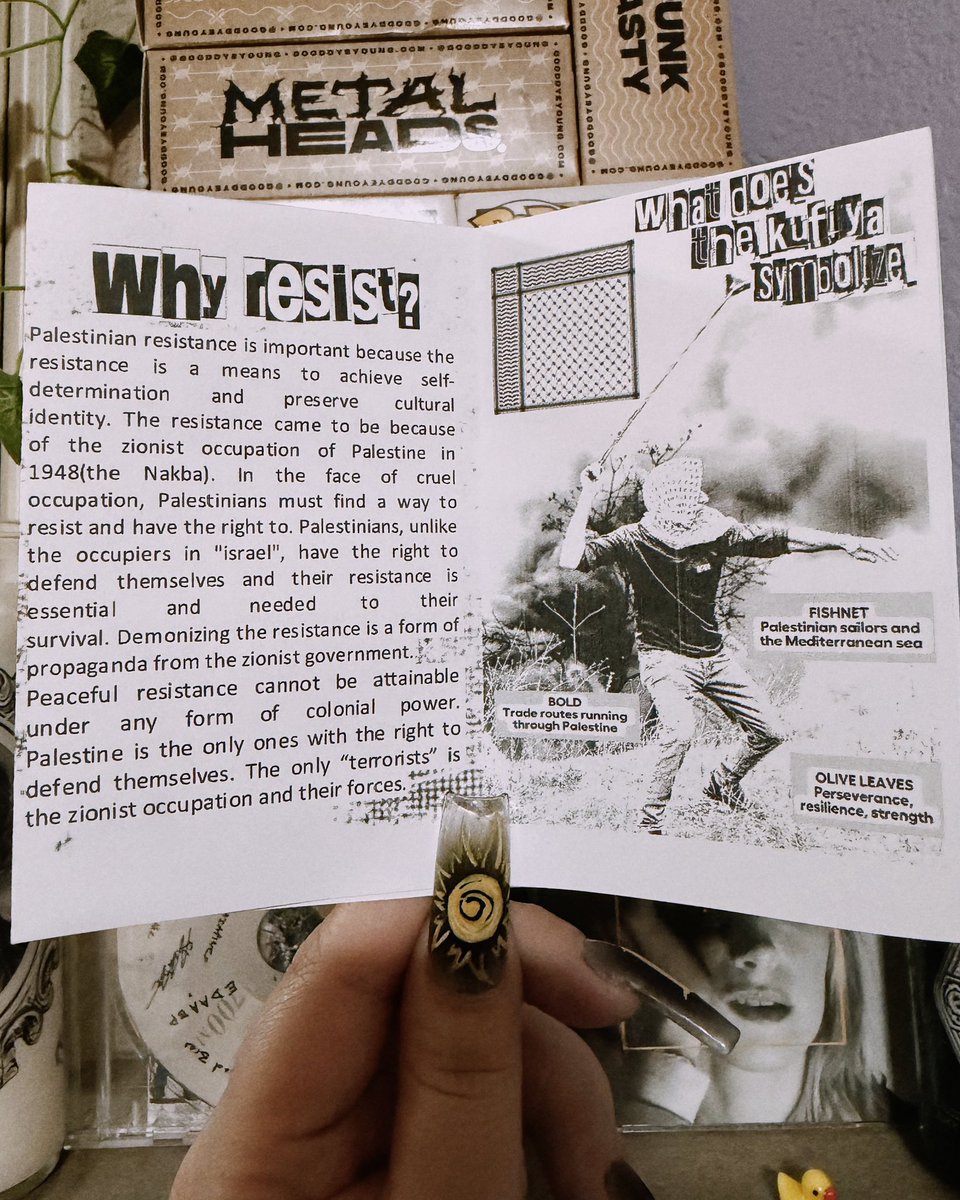 METAL
HEADS
UNK
ASTY
Why resist?
Palestinian resistance is important because the
resistance is a means to achieve self-
determination and preserve cultural
identity. The resistance came to be because
of the zionist occupation of Palestine in
1948(the Nakba). In the face of cruel
occupation, Palestinians must find a way to
resist and have the right to. Palestinians, unlike
the occupiers in "israel", have the right to
defend themselves and their resistance is
essential and needed to their
survival. Demonizing the resistance is a form of
propaganda from the zionist government.
Peaceful resistance cannot be attainable
under any form of colonial power.
Palestine is the only ones with the right to
defend themselves. The only “terrorists” is
the zionist occupation and their forces.
What does
the kufiya
symbolize
FISHNET
Palestinian sailors and
the Mediterranean sea
BOLD
Trade routes running
through Palestine
OLIVE LEAVES
Perseverance,
resilience, strength